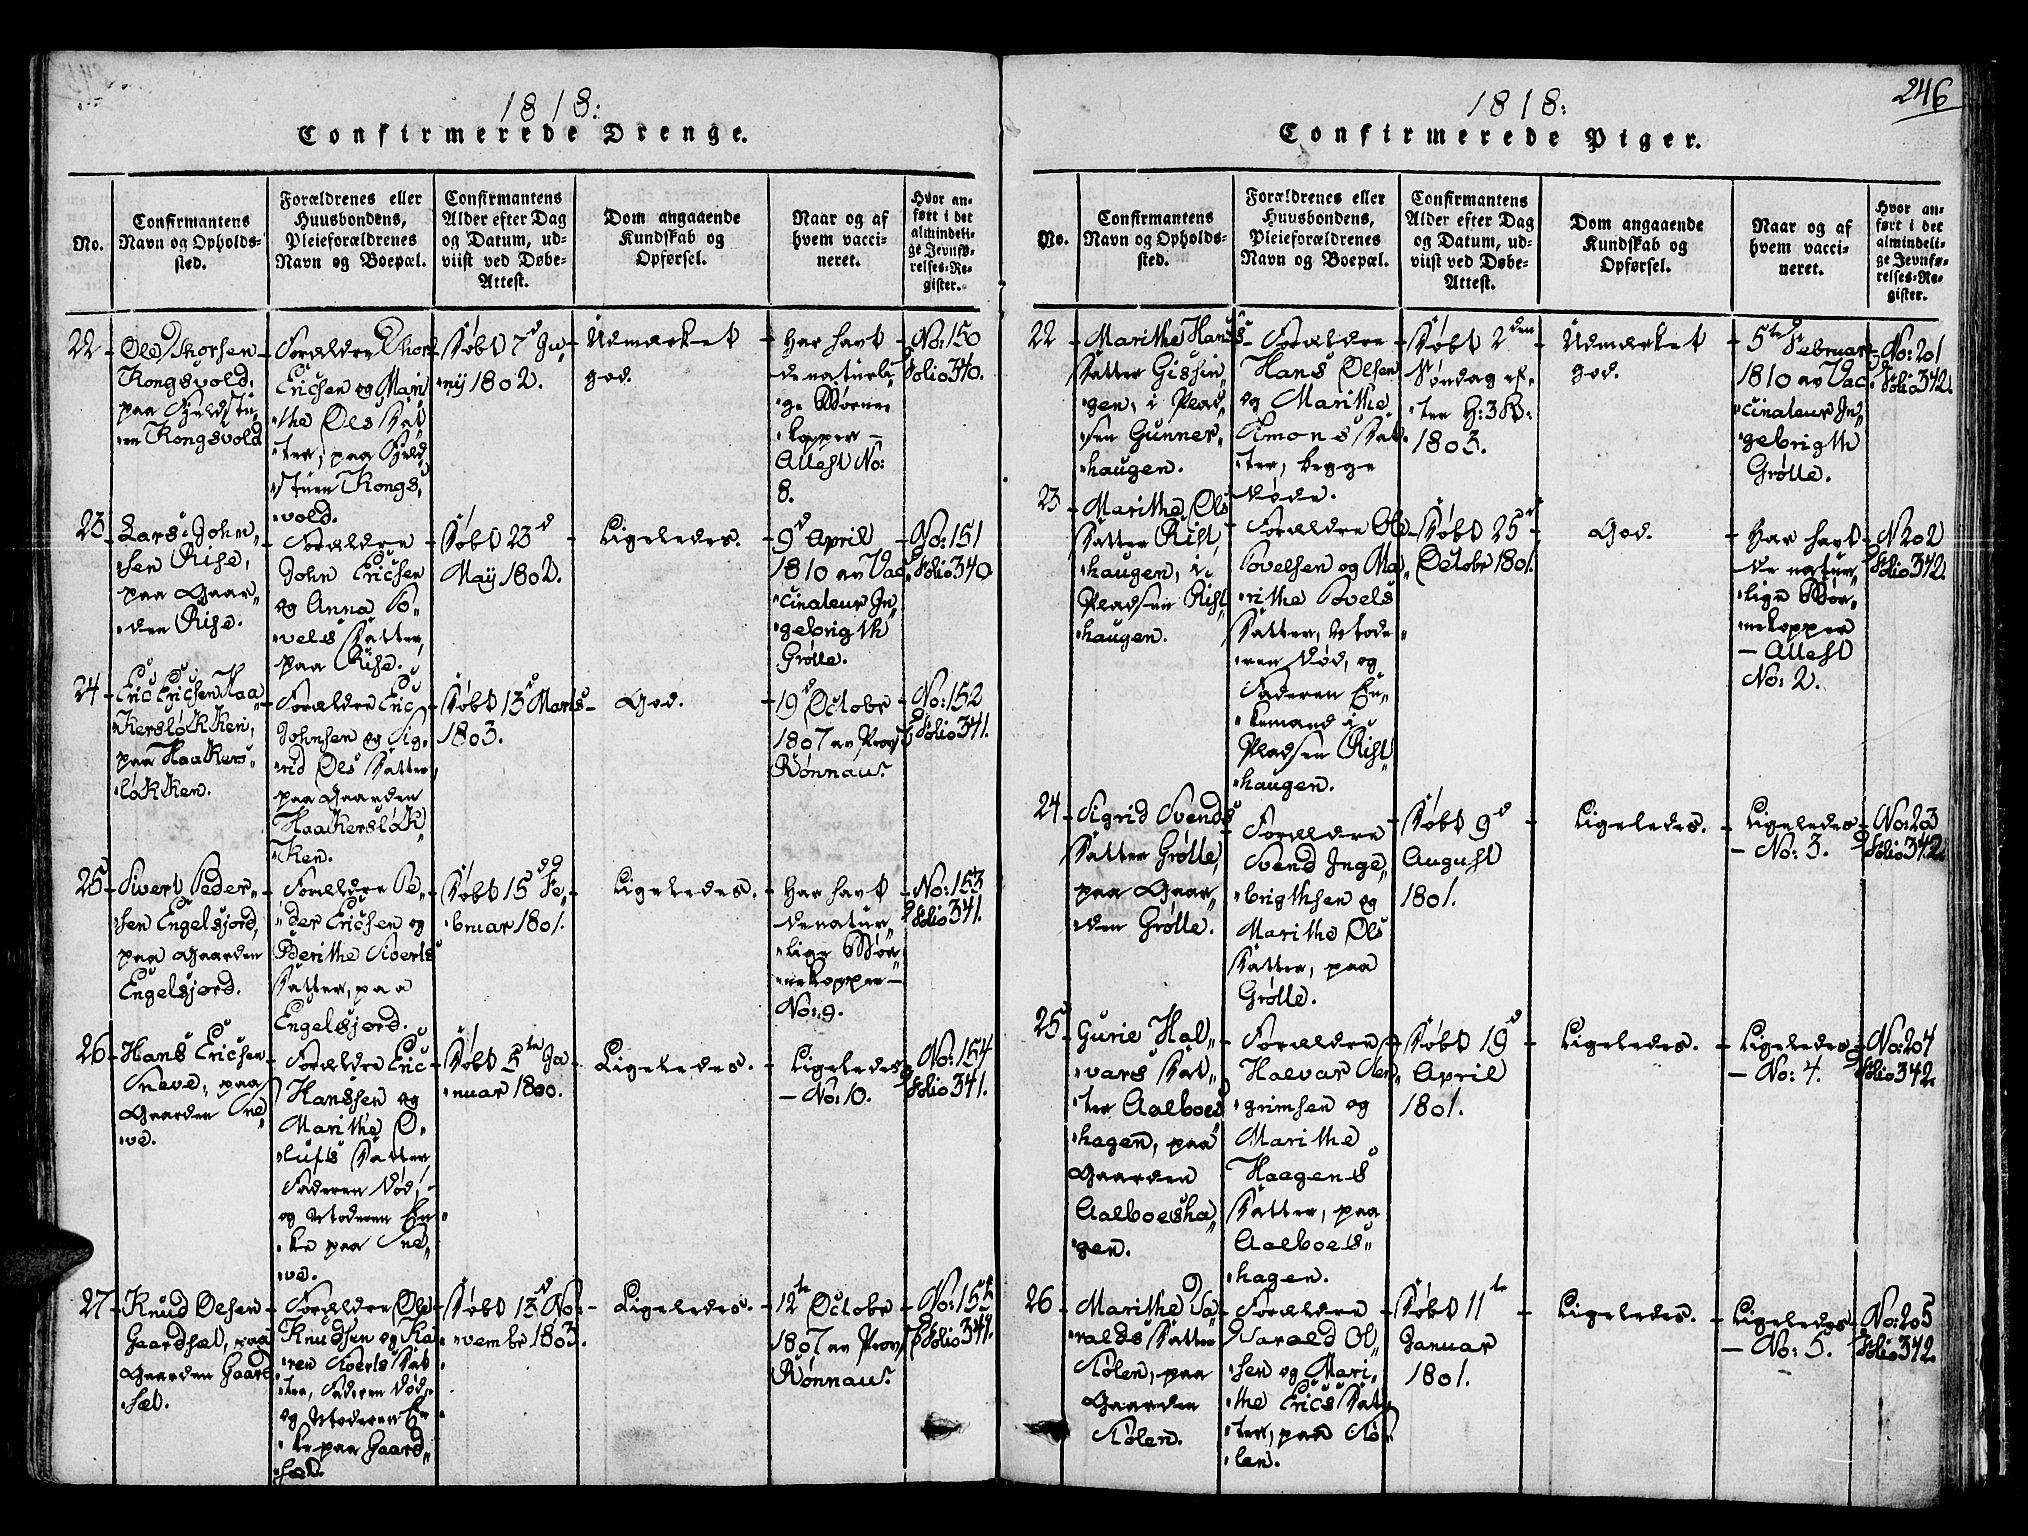 246
1818:
Confirmerede Drenge.
No.
Confirmantens
Navn og Opholds-
sted.
Forældrenes eller
Huusbondens,
Pleieforældrenes
Navn og Boepæl.
Confirmantens
Alder efter Dag
og Datum, ud-
viist ved Døbe-
Attest.
Dom angaaende
Kundskab og
Opførsel.
Naar og af
hvem vacci-
neret.
Hvor an-
ført i det
almindeli-
ge Jevnfø-
relses-Re-
gister.
22
Ole Thorsen
Kongsvold,
paa Fjeldstu-
en Kongsvold
Forældre Thor
Ericsen og Mari
the Ols Datter,
paa Fjeld
stuen Kongs,
vold.
Døbt 7d Ju,
nij 1802.
Udmærket
god.
Har havt
de naturli
ge Børne
kopper –
Attest No:
8.
No: 150
Folio 340.
23
Lars John,
sen Rise,
paa Gaar,,
den Rise.
Forældre
John Ericsen
og Anna Po,
vels Datter,
paa Rise.
Døbt 23d
Maij 1802.
Ligeledes.
9d April
1810 av Vac,
cinateur In
gebrigth
Grølle.
No: 151
Folio 340
24
Eric Ericsen Haa
kersløkken,
paa Haakers,
løkken.
Forældre Eric
Johnsen og Sig,
rid Ols Datter,
paa Gaarden
Haakersløk
ken.
Døbt 13d Marts
1803.
God.
19d Octobr
1807 av Provst
Rønnau.
No: 152
Folio 341.
25
Sivert Peder,
sen Engelsjord,
paa Gaarden
Engelsjord.
Forældre Pe,
der Ericsen og
Berithe Siverts
Datter, paa
Engelsjord.
Døbt 15d Fe,
bruar 1801.
Ligeledes.
Har havt
de natur,
lige Bør,
nekopper –
No: 9.
No: 153
Folio 341.
26
Hans Ericsen
Sneve, paa
Gaarden Sne
ve.
Forældre Eric
Hanssen og
Marithe O,
lufs Datter,
Faderen Død,
og Moderen En
ke paa Sne,
ve.
Døbt 5te Ja
nuar 1800.
Ligeledes.
Ligeledes
– No: 10.
No: 154
Folio 341.
27
Knud Olsen
Gaardsæt, paa
Gaarden Gaard
sæt.
Forældre Ole
Knudsen og Ka
ren Siverts Dat
ter, Faderen Død,
og Moderen En
ke paa Gaard
sæt.
Døbt 13d No,
vembr 1803.
Ligeledes.
12te Octobr
1807 av Provst
Rønnau.
No: 155
Folio 341.
1818:
Confirmerede Piger.
No.
Confirmantens
Navn og Opholds-
sted.
Forældrenes eller
Huusbondens,
Pleieforældrenes
Navn og Boepæl.
Confirmantens
Alder efter Dag
og Datum, ud-
viist ved Døbe-
Attest.
Dom angaaende
Kundskab og
Opførsel.
Naar og af
hvem vacci-
neret.
Hvor an-
ført i det
almindeli-
ge Jevnfø-
relses-Re-
gister.
22
Marithe Hans
Datter Gissin
gen, i Plad,
sen Gunner,
haugen.
Forældre
Hans Olsen
og Marithe
Simons Dat
ter, begge
døde.
Døbt 2den
Søndag ef,
ter H: 3 K:
1803.
Udmærket
god.
5te Februar
1810 av Vac
cinateur In,
gebrigth
Grølle.
No: 201
Folio 342.
23
Marithe Ols
Datter Rist,
haugen, i
Pladsen Rist
haugen.
Forældre Ole
Povelsen og Ma,
rithe Povels
Datter, Mode,
ren Død, og
Faderen En,
kemand i
Pladsen Rist
haugen.
Døbt 25d
Octobr 1801.
God.
Har havt
de natur,
lige Bør,
nekopper
– Attest
No: 2.
N 202
Folio 342.
24
Sigrid Svends
Datter Grølle,
paa Gaar,
den Grølle.
Forældre
Svend Inge,
brigthsen og
Marithe Ols
Datter, paa
Grølle.
Døbt 9d
August
1801.
Ligeledes.
Ligeledes
– No: 3.
No: 203
Folio 342.
25
Gurie Hal,
vars Dat,
ter Aalboes
hagen, paa
Gaarden
Aalboesha,
gen.
Forældre
Halvar Aen,
grimsen og
Marithe
Haagens
Datter, paa
Aalboes,
hagen.
Døbt 19d
April
1801.
Ligeledes.
Ligeledes
– No: 4.
No: 204
Folio 342.
26
Marithe Ha,
ralds Datter
Stølen, paa
Gaarden
Stølen.
Forældre
Harald Ol,
sen og Mari,
the Erics Dat
ter, paa Stø,
len.
Døbt 11te
Januar
1801.
Ligeledes.
Ligeledes
– No: 5.
No: 205
Folio 342.